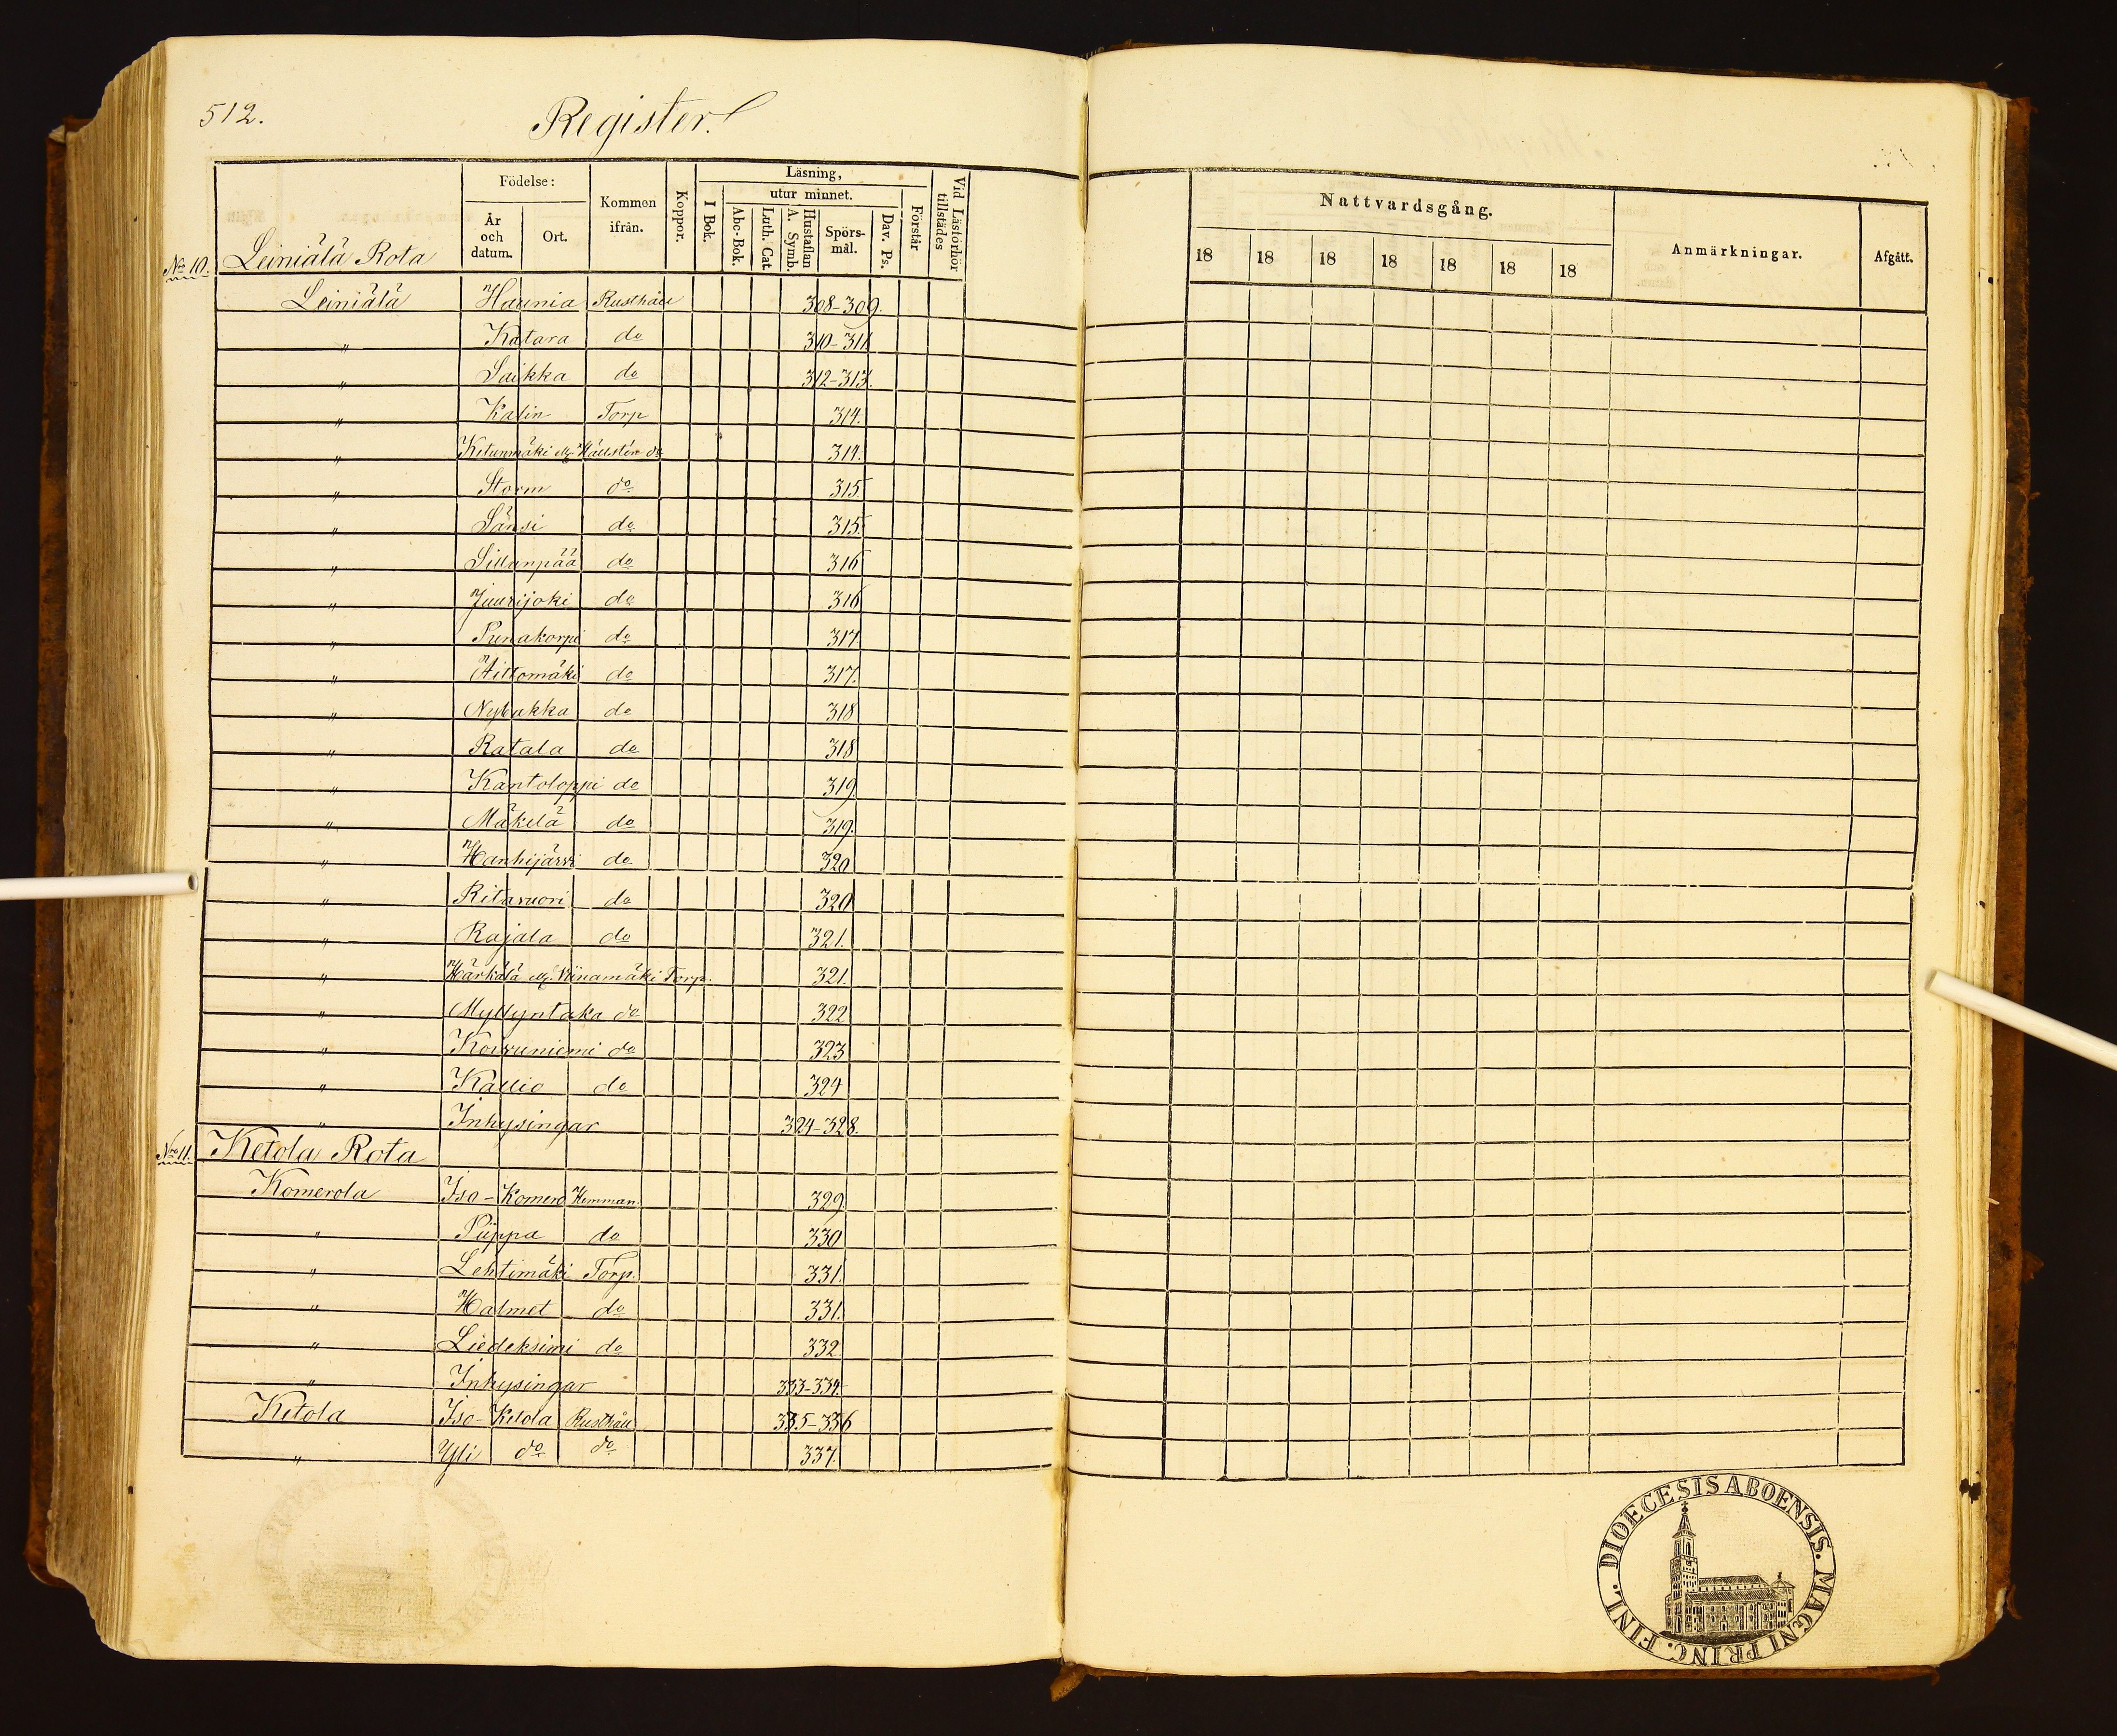 512.
Register.
Födelse:
År och datum.
Ort.
Kommen ifrån.
Koppor.
Läsning,
I Bok.
utur minnet.
Abc-Bok.
Luth. Cat.
Hustaflan A. Symb.
Spörsmål.
Dav. Ps.
Förstår
Vid Läsförhör tillstädes
Nattvardsgång.
18 18 18 18 18 18 18
Anmärkningar.
Afgått.
No 10. Leiniälä Rota
Leiniälä Haunia Rusthåll 308-309.
" Katara do 310-311
" Saikka do 312-313.
" Kalin Torp 314.
" Ketunmäki elg. Hällstén do 314.
" Storm do 315.
" Sänsi do 315.
" Sillanpää do 316
" Juurijoki do 316
" Punakorpi do 317.
" Aittomäki do 317.
" Nybakka do 318
" Ratala do 318.
" Kantoloppi do 319.
" Mäkelä do 319.
" Hanhijärvi do 320
" Ritavuori do 320
" Rajala do 321.
" Härkälä elg. Viinamäki Torp. 321.
" Myllyntaka do 322
" Koivuniemi do 323
" Kallio do 324
" Inhysingar 324-328.
No 11. Ketola Rota
Komerola Iso-Komero Hemman. 329.
" Piippa do 330
" Lehtimäki Torp. 331.
" Halmet do 331.
" Liedeksimi do 332
" Inhysingar 333-334.
Ketola Iso-Ketola Rusthåll 335-336
" Yli do do 337.
DIOECESIS ABOENSIS. MAGNI PRINC. FINL.